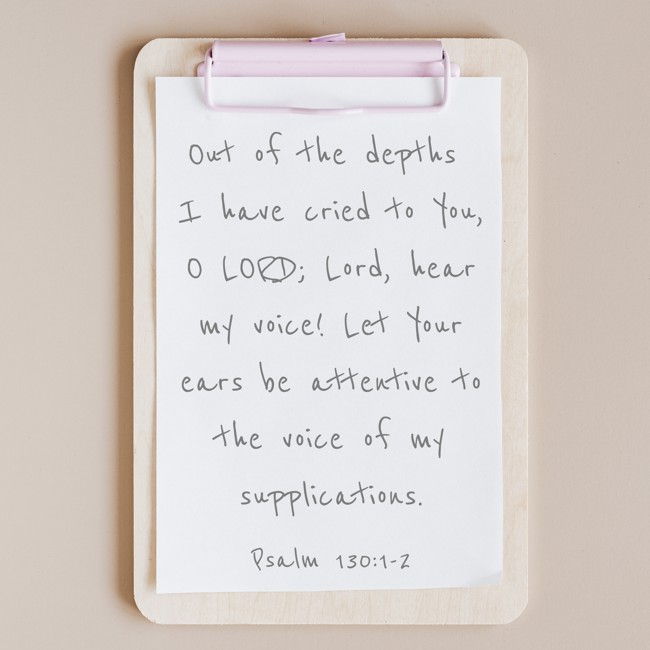 Out of the depths
I have cried to You,
O LORD; Lord, hear
my voice! Let Your
ears be attentive to
the voice of my
supplications.
Psalm 130:1-2